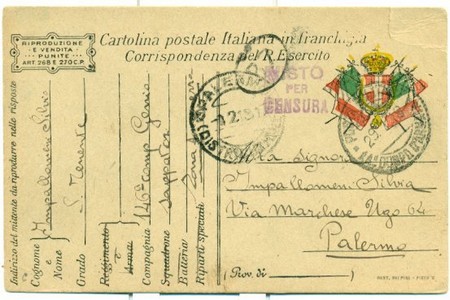 RIPRODUZIONE
E VENDITA
PUNITE
ART. 268 E 270 C.P.
Cartolina postale Italiana in franchigia
Corrispondenza del R. Esercito
VISTO
PER
CENSURA
PALERMO
Indirizzo del mittente da riprodurre nelle risposte
Cognome e Nome Impallomeni Silvio
Grado S. Tenente
Reggimento o Arma
Compagnia 146ª Comp Genio
Squadrone Zappatori
Batteria
Riparti speciali Zona
Alla Signora
Impallomeni Silvia
Via Marchese Ugo 64
Palermo
Prov. di